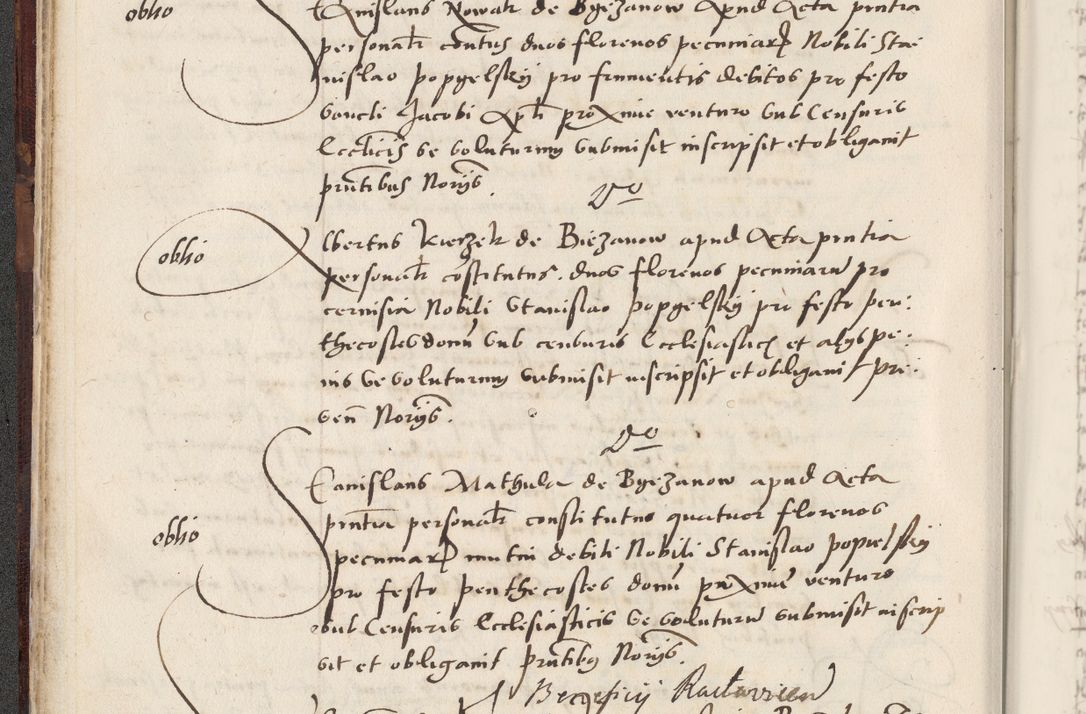 oblio
Stanislaus Nowak de Byezanow Apud Acta pntia
personalr contus duos florenos pecuniar Nobili Stai
nislao popgelskij pro frumentis debitos pro festo
Sancti Jacobi Apli proxime venturo sub Censuris
Ecclicis se soluturum submisit inscripsit et obligavit
pntibus Norijs.
Do
oblio
Albertus Kierzek de Biezanow apud Acta pntia
personalr costitutus duos florenos pecuniaru pro
cernisia Nobili Stanislao popgelskij pro festo pen:
thecostes domi sub censuris Ecclesiastic et alijs pe:
nis se soluturum submisit inscripsit et obligavit pre:
sen Norijs.
Do
oblio
Stanislaus Mathula de Byezanow apud Acta
pntia personalr constitutus quatuor florenos
pecuniar mutui debiti Nobili Stanislao popielskij
pro festo penthecostes domi proxime venturo
sub Censuris Ecclesiasticis se soluturu submisit inscrip
sit et obligavit pntibus Norijs.